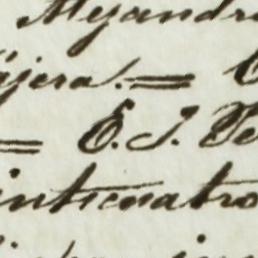 Alejandr
ájera.=
= E. J. Te
inticuatro